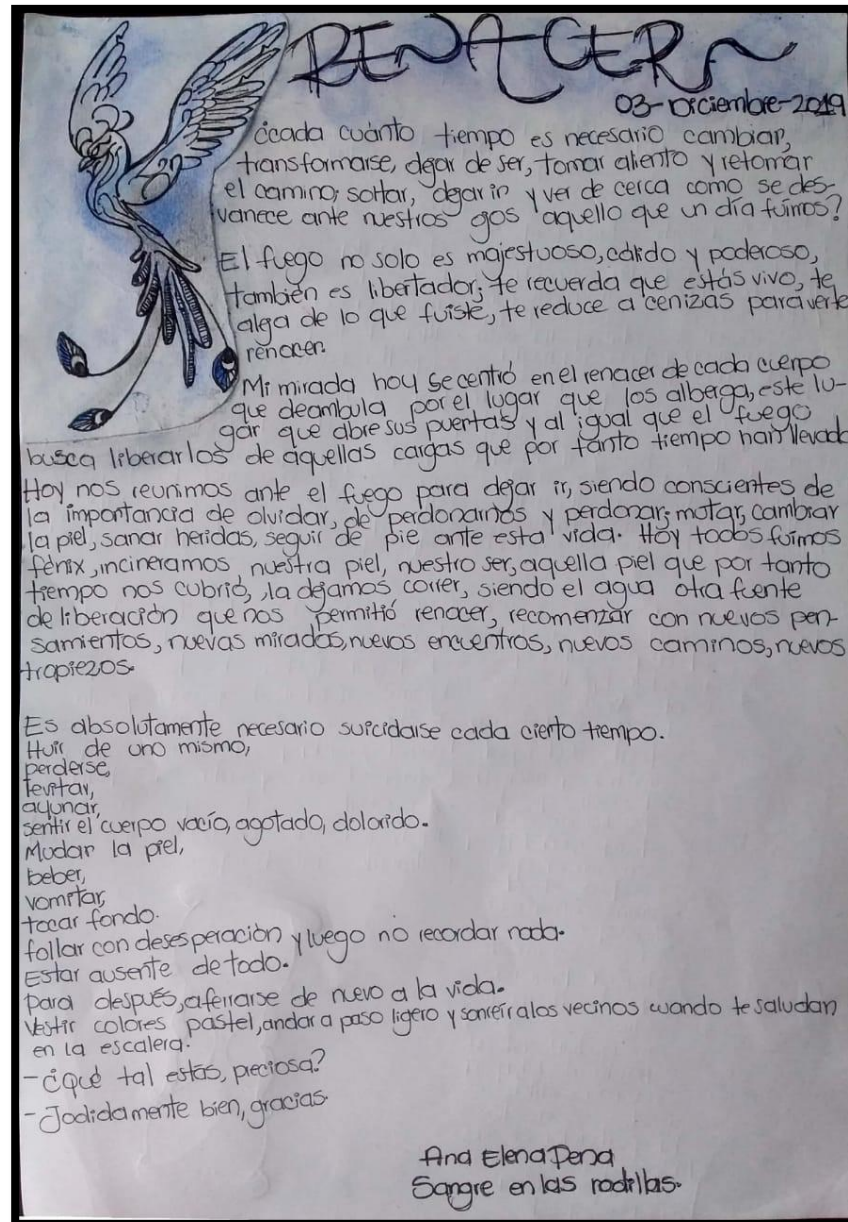 RENACER
03-Diciembre-2019
¿cada cuánto tiempo es necesario cambiar,
transformarse, dejar de ser, tomar aliento y retomar
el camino; soltar, dejar ir y ver de cerca como se des-
vanece ante nuestros ojos aquello que un día fuimos?
El fuego no solo es majestuoso, cálido y poderoso,
también es libertador; te recuerda que estás vivo, te
aleja de lo que fuiste, te reduce a cenizas para verte
renacer.
Mi mirada hoy se centró en el renacer de cada cuerpo
que deambula por el lugar que los alberga, este lu-
gar que abre sus puertas y al igual que el fuego
busca liberarlos de aquellas cargas que por tanto tiempo han llevado
Hoy nos reunimos ante el fuego para dejar ir, siendo conscientes de
la importancia de olvidar, de perdonarnos y perdonar; matar, cambiar
la piel, sanar heridas, seguir de pie ante esta vida. Hoy todos fuimos
fénix, incineramos nuestra piel, nuestro ser, aquella piel que por tanto
tiempo nos cubrió, la dejamos correr, siendo el agua otra fuente
de liberación que nos permitió renacer, recomenzar con nuevos pen-
samientos, nuevas miradas, nuevos encuentros, nuevos caminos, nuevos
tropiezos.
Es absolutamente necesario suicidarse cada cierto tiempo.
Huir de uno mismo,
perderse,
levitar,
ayunar,
sentir el cuerpo vacío, agotado, dolorido.
Mudar la piel,
beber,
vomitar,
tocar fondo.
follar con desesperación y luego no recordar nada.
Estar ausente de todo.
para después, aferrarse de nuevo a la vida.
Vestir colores pastel, andar a paso ligero y sonreír a los vecinos cuando te saludan
en la escalera.
-¿Qué tal estás, preciosa?
-Jodidamente bien, gracias.
Ana Elena Pena
Sangre en las rodillas.